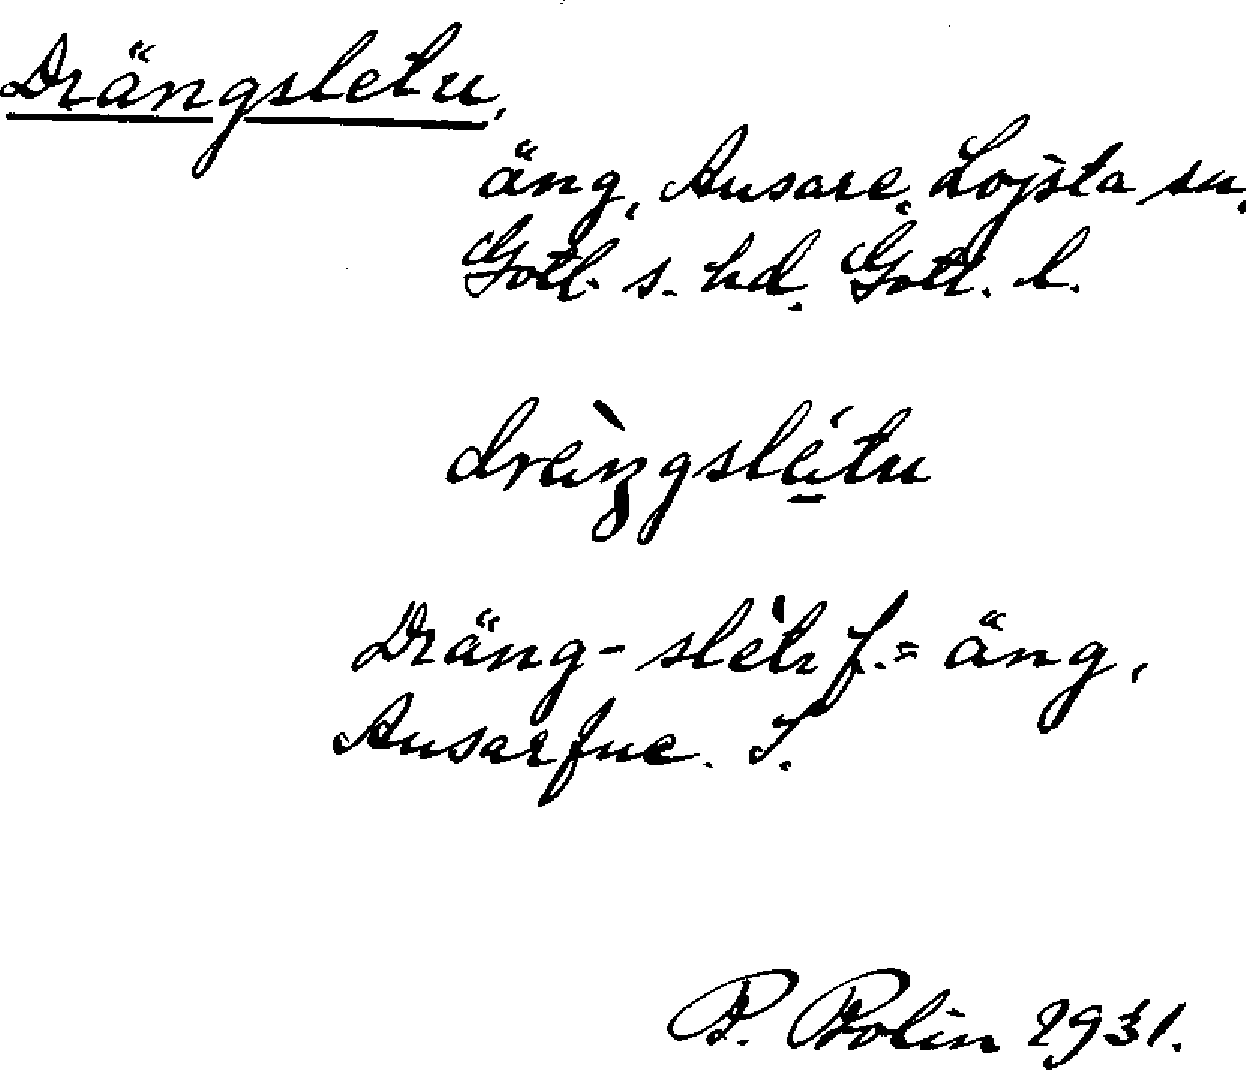 Drängsletu,
äng, Ausare, Lojsta sn,
Gotl. s. hd. Gotl. l.
dräi̖ŋgslei̖tu
Dräng-slètr f. = äng,
Ausarfue. L.
P. Bolin 1931.